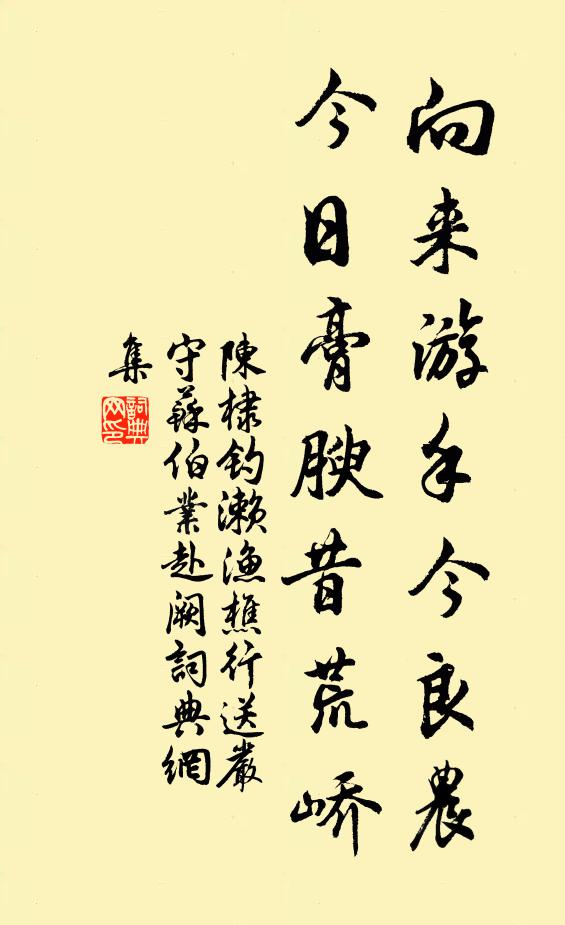 向来游手今良農
今日膏腴昔荒嶠
陳棣釣瀨漁樵行送嚴
守蘇伯業赴闕詞典網
集
詞典
网印